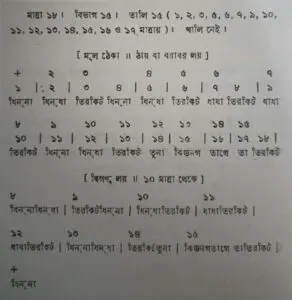 মাত্রা ১৮। বিভাগ ১৫। তালি ১৫ ( ১, ২, ৩, ৫, ৬, ৭, ৯, ১০,
১১, ১২, ১৩, ১৪, ১৫, ১৬ ও ১৭ মাত্রায় )। খালি নেই।
[ মূল ঠেকা ॥ ঠায় বা বরাবর লয় ]
+ ২ ৩ ৪ ৫ ৬ ৭
১ | ২ | ৩ ৪ | ৫ | ৬ | ৭ ৮ | ৯
ধিন্‌না ধিন্‌ধা তিরকিট ধিন্‌না ধিন্‌ধা তিরকিট ধাধা তিরকিট ধাধা
৮ ৯ ১০ ১১ ১২ ১৩ ১৪ ১৫
১০ | ১১ | ১২ | ১৩ | ১৪ | ১৫ | ১৬ | ১৭ ১৮ |
তিরকিট ধিন্‌না ধিন্‌ধা তিরকিট তুনা কিড়নগ তাগে তা তিরকিট
[ দ্বিগুণ লয় ॥ ১০ মাত্রা থেকে ]
৮ ৯ ১০ ১১
ধিন্‌নাধিন্‌ধা | তিরকিটধিন্‌না | ধিন্‌ধাতিরকিট | ধাধাতিরকিট |
১২ ১৩ ১৪ ১৫
ধাধাতিরকিট | ধিন্‌নাধিন্‌ধা | তিরকিটতুনা | কিড়নগতাগে তাতিরকিট |
+
ধিন্‌না